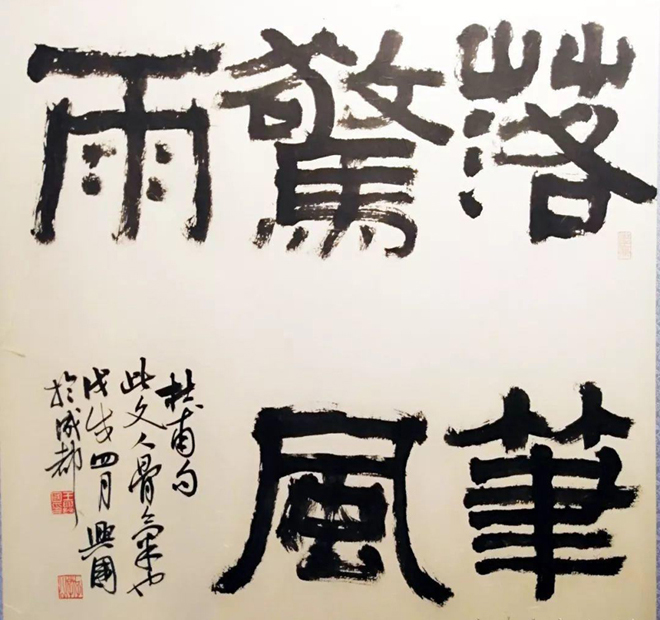 落筆
驚風
雨
杜甫句
此文人骨气也
戊戌四月興國
於成都